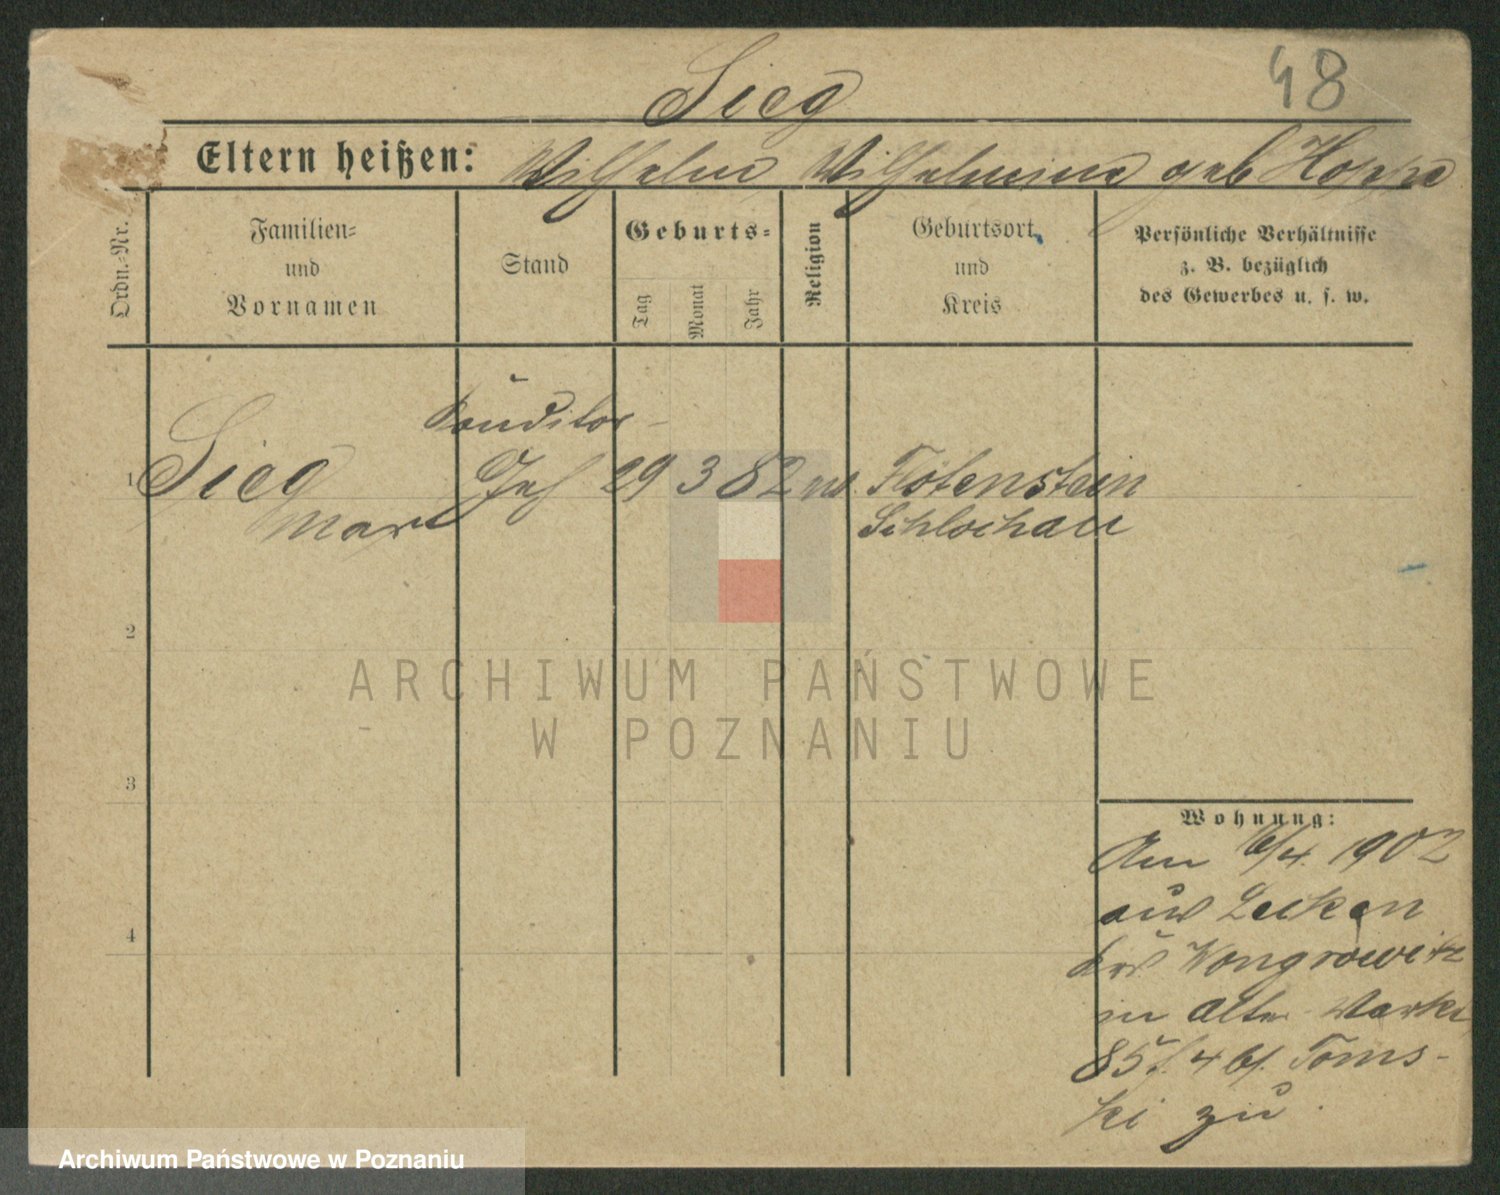 48
Sieg
Eltern heißen: Wilhelm Wilhelmine geb Hoppe
Ordn.-Nr.
Familien- und Vornamen
Stand
Geburts-
Tag
Monat
Jahr
Religion
Geburtsort und Kreis
Persönliche Verhältnisse
z. B. bezüglich
des Gewerbes u. s. w.
Konditor-
1 Sieg Geh 29 3 82 Flötenstein
Max Schlochau
2
3
4
Wohnung:
Am 6/4. 1902
aus
Krs Wongrowitz
in Alter Markt
85 Toms-
ki zu.
ARCHIWUM PAŃSTWOWE
W POZNANIU
Archiwum Państwowe w Poznaniu